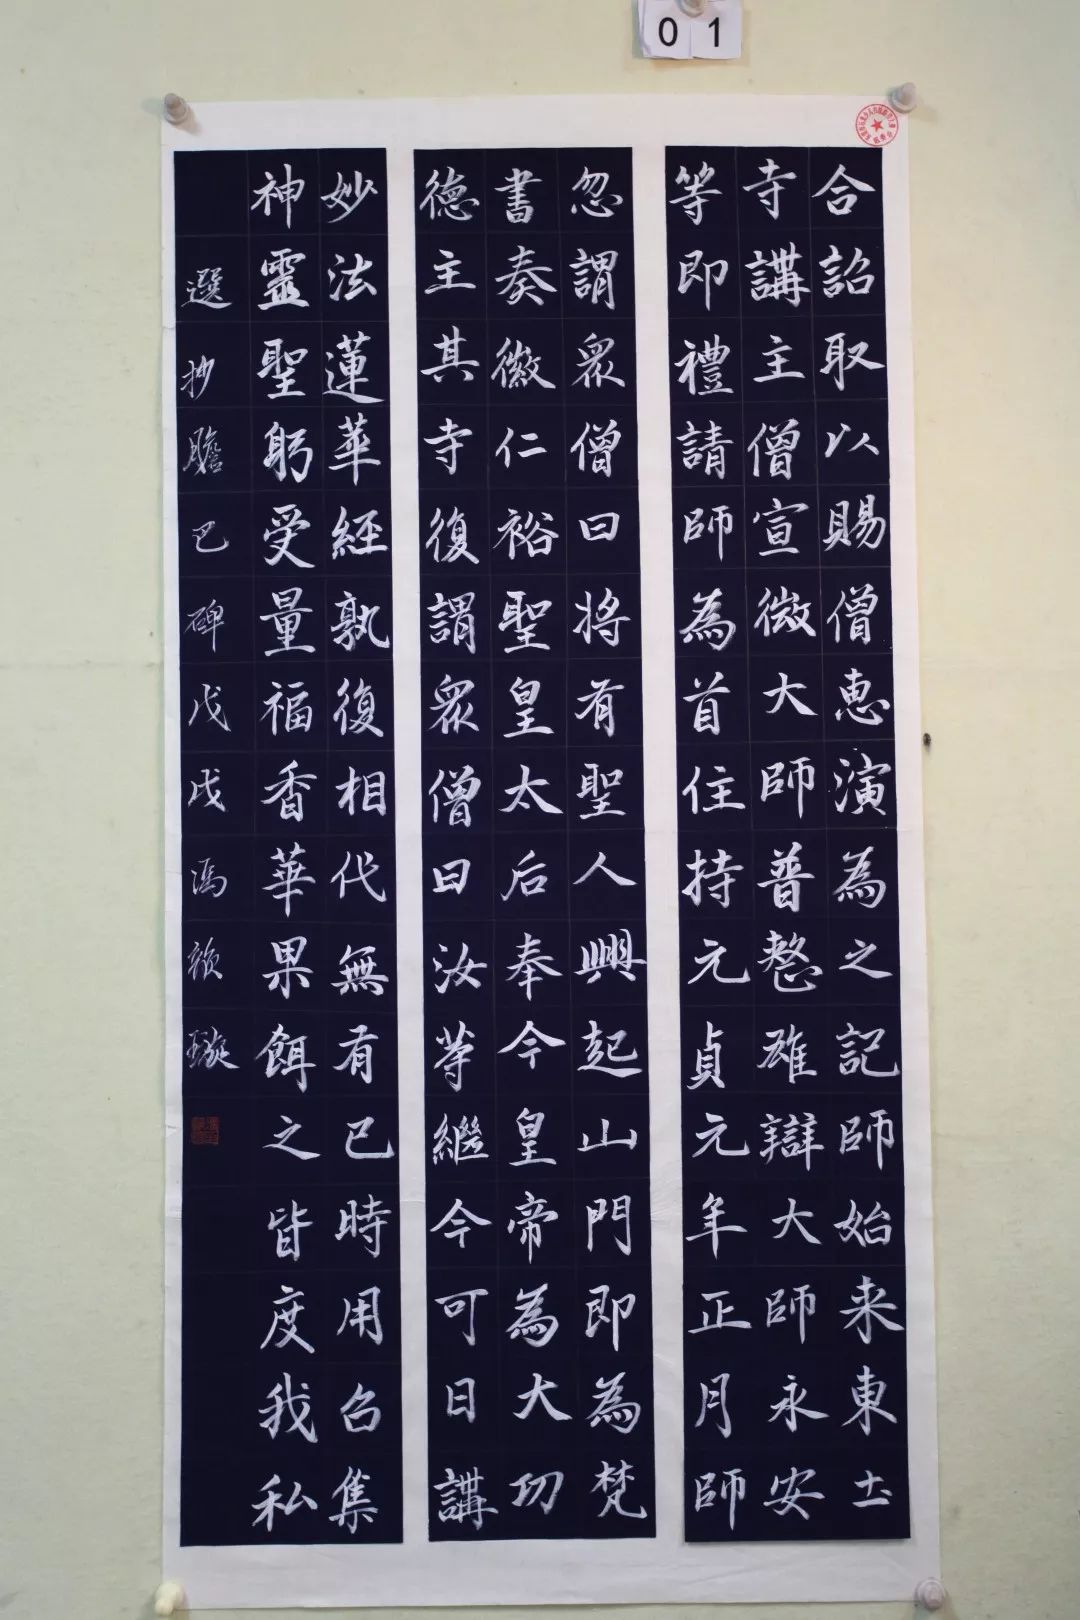 01
合詔取以賜僧惠演為之記師始来東土
寺講主僧宣微大師普整雄辯大師永安
等即禮請師為首住持元貞元年正月師
忽謂眾僧曰将有聖人興起山門即為梵
書奏徽仁裕聖皇太后奉今皇帝為大功
德主其寺復謂眾僧曰汝等繼今可日講
妙法蓮華經孰復相代無有已時用召集
神靈聖躬受量福香華果餌之皆度我私
選抄膽巴碑戊戌馮